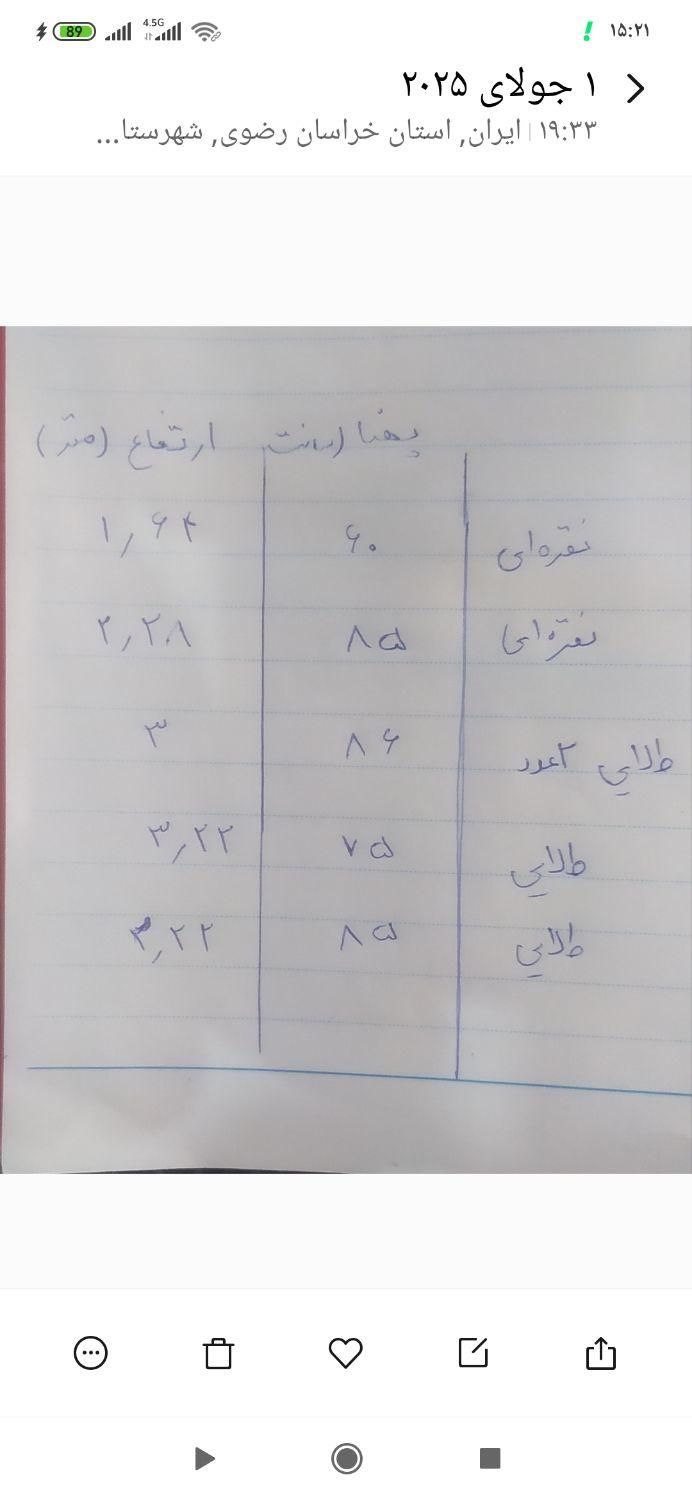 89 4.5G ۱۵:۲۱
۱ جولای ۲۰۲۵
۱۹:۳۳ | ایران, استان خراسان رضوی, شهرستا...
پهنا (سانت ارتفاع (متر)
نقره‌ای ۶۰ ۱٫۶۴
نقره‌ای ۸۵ ۲٫۲۸
طلایی ۲عدد ۸۶ ۳
طلایی ۷۵ ۳٫۲۲
طلایی ۸۵ ۳٫۲۲